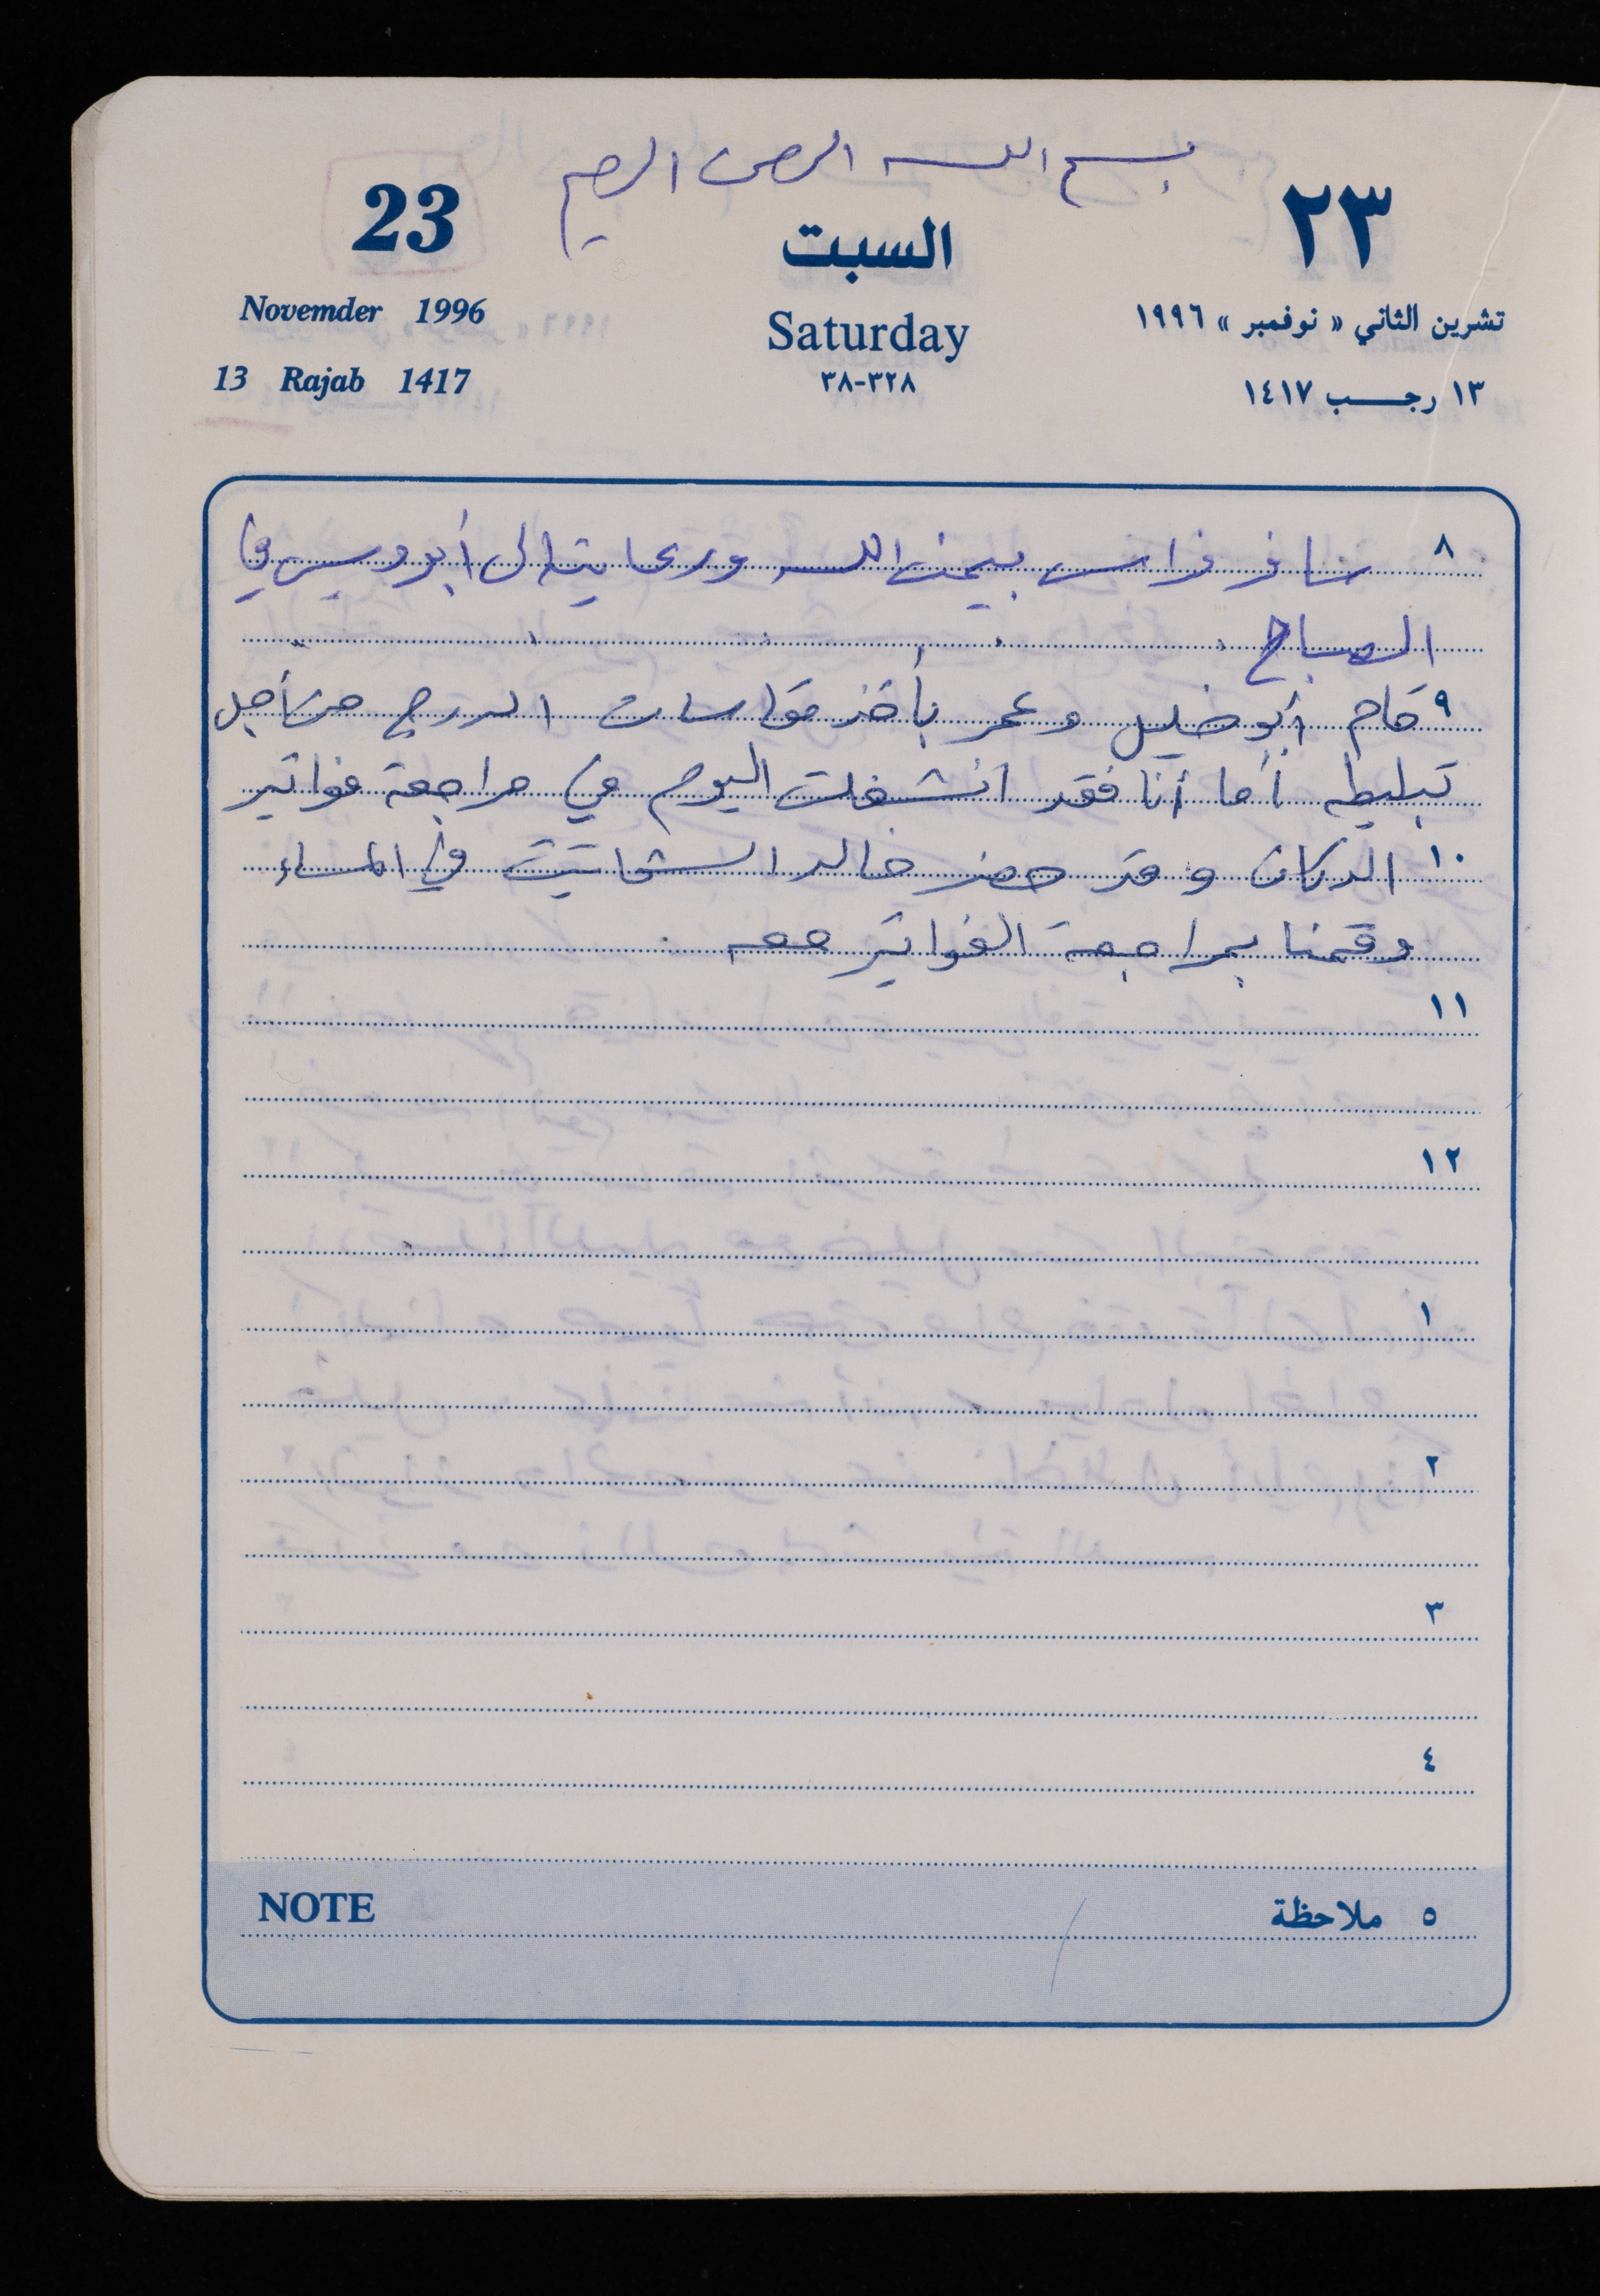 بسم الله الرحمن الرحيم
23 السبت ٢٣
Novemder 1996 Saturday تشرين الثاني « نوفمبر » ١٩٩٦
13 Rajab 1417 ٣٢٨-٣٨ ١٣ رجب ١٤١٧
٨ سافر فراس بيمن الله ورعايته الى أبو ديس في
الصباح
٩ قام أبو خليل وعمر بأخذ مقاسات الدرج من أجل
تبليطه أما أنا فقد انشغلت اليوم في مراجعة فواتير
١٠ الدكان وقد حضر خالد في المساء
وقمنا بمراجعة الفواتير معه .
١١
١٢
١
٢
٣
٤
٥ ملاحظة NOTE